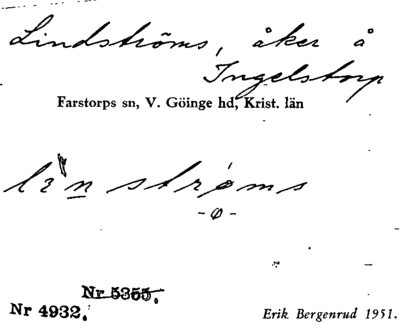 Lindströms, åker å
Ingelstorp
Farstorps sn, V. Göinge hd, Krist. län
-ø-
Nr 5355.
Nr 4932.
Erik Bergenrud 1951.